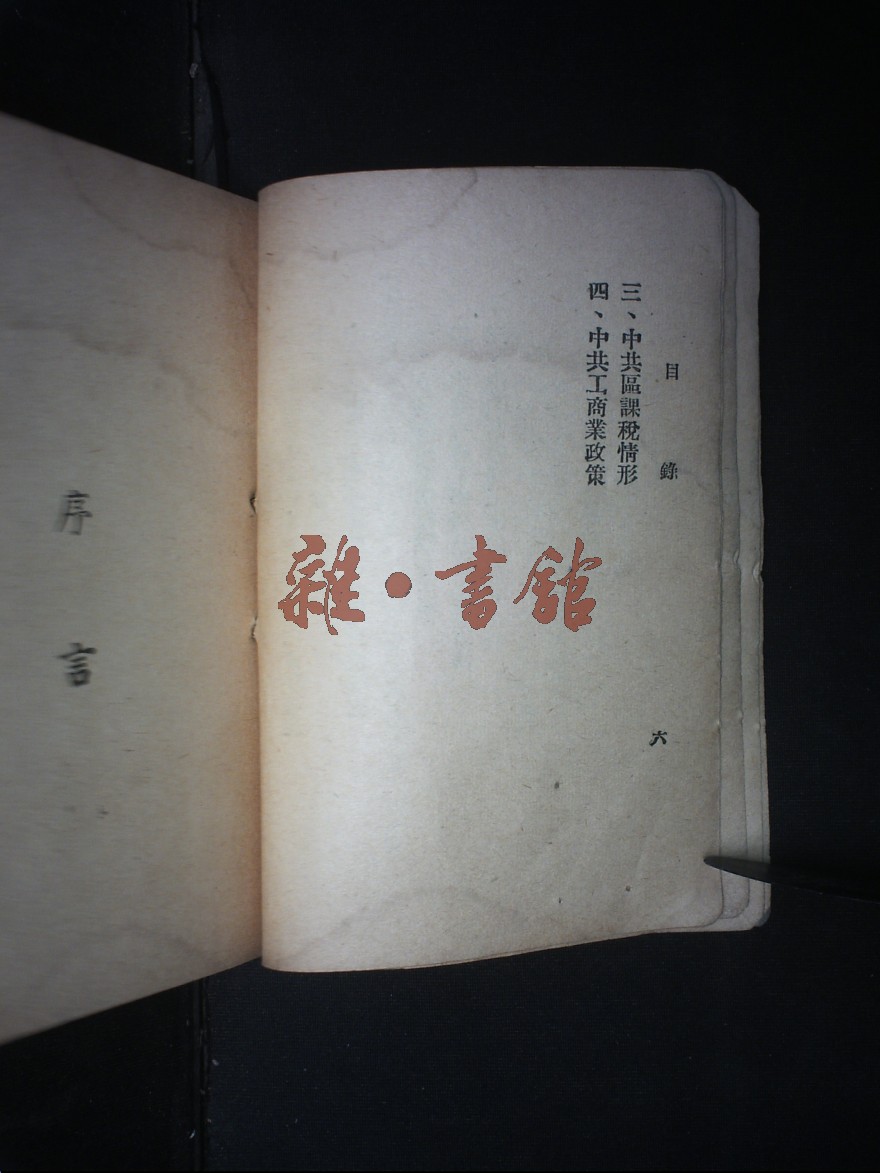 目錄
三、中共區課稅情形
四、中共工商業政策
六
序言
雜·書館